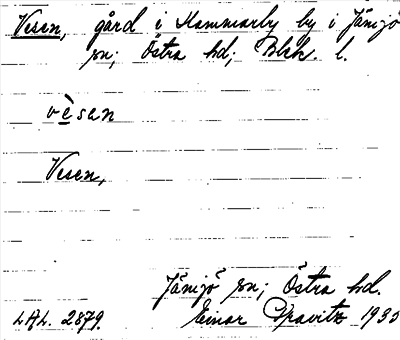 Vesen, gård i Hammarby by i Jämjö
sn; Östra hd; Blek. l.
vèsan
Vesen,
Jämjö sn; Östra hd.
LAL. 2879. Einar Gravitz 1935